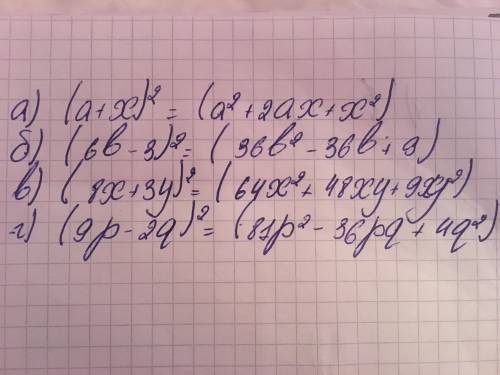 а) (a+x)² = (a²+2ax+x²)
б) (6b-3)² = (36b²-36b+9)
в) (8x+3y)² = (64x²+48xy+9xy²)
г) (9p-2q)² = (81p²-36pq+4q²)